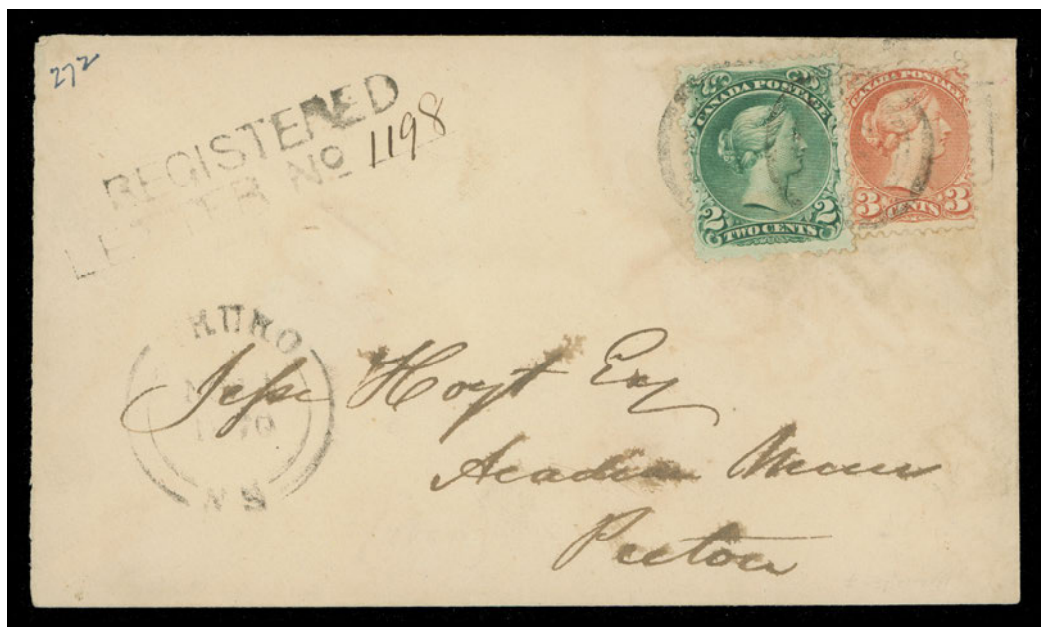 272
REGISTERED
LETTER No 1198
CANADA POSTAGE
2 2
TWO CENTS
CANADA POSTAGE
3 CENTS 3
TRURO
70
NS
Jesse Hoyt Esq
Acadian Mines
Pictou